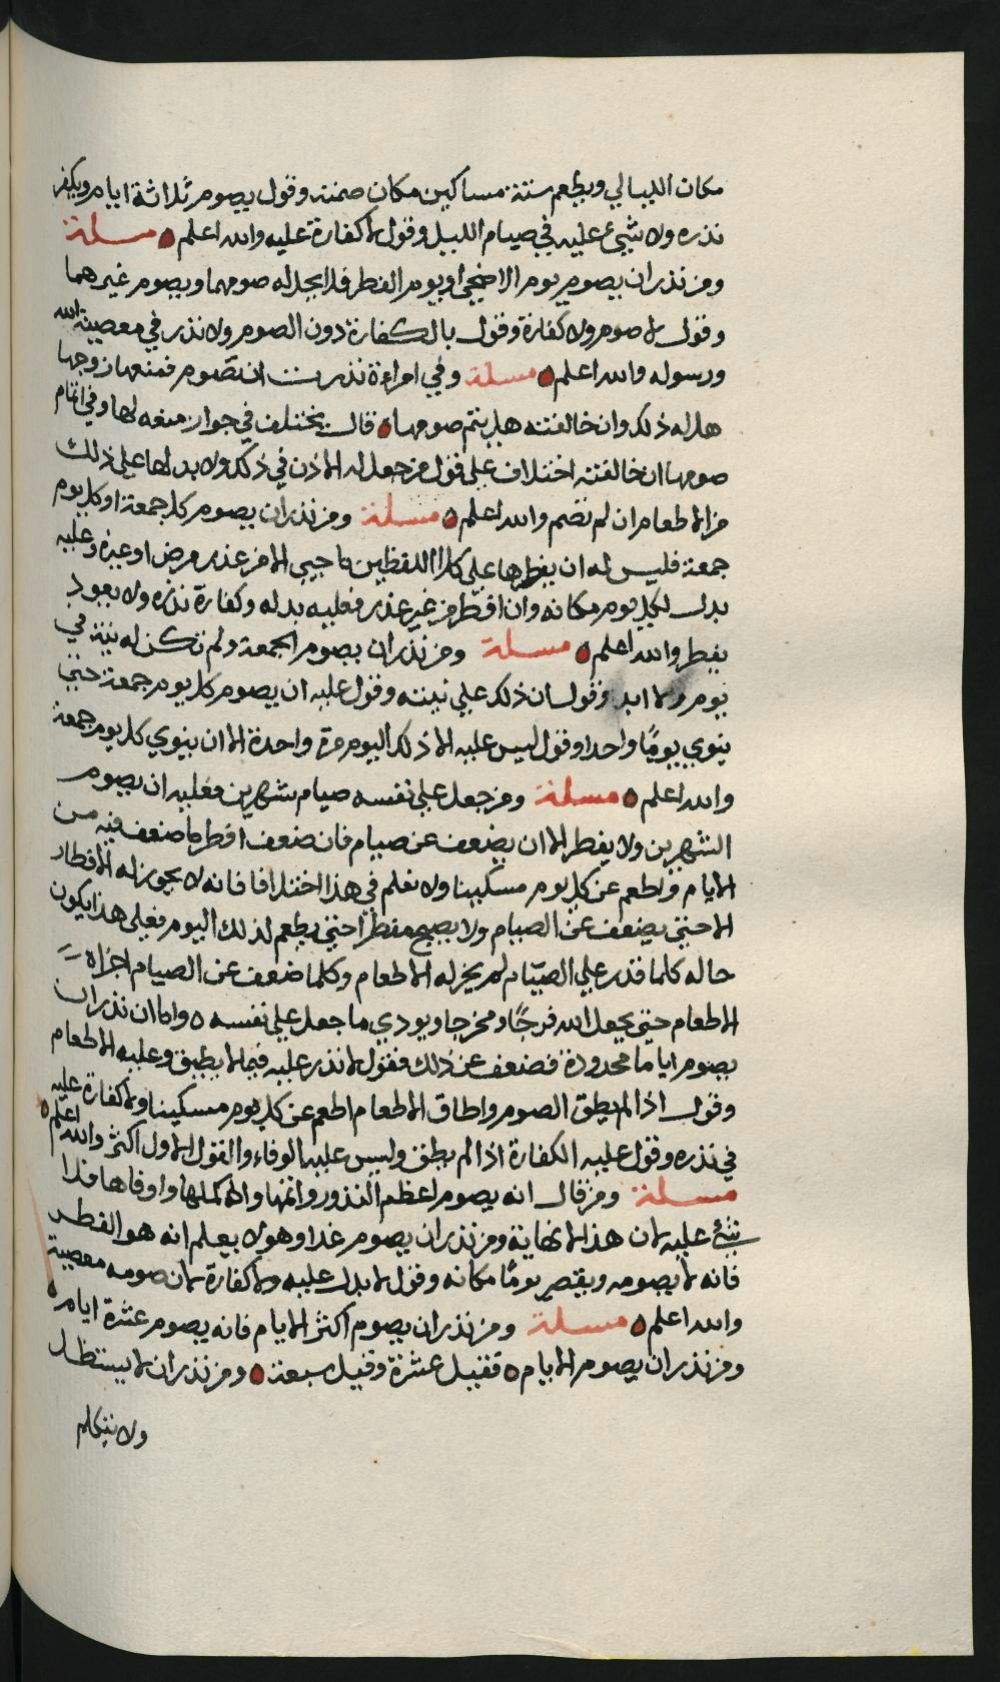 مكان الليالي ويطعم ستة مساكين مكان صمته وقول يصوم ثلاثة ايام ويكفر
نذره ولا شيء عليه في صيام الليل وقول لا كفارة عليه والله اعلم مسلة
ومن نذر ان يصوم يوم الاضحى او يوم الفطر فلا يحل له صومهما ويصوم غيرهما
وقول لا صوم ولا كفارة وقول بالكفارة دون الصوم ولا نذر في معصية الله
ورسوله والله اعلم مسلة وفي امراءة نذرت ان تصوم فمنعها زوجها
هل له ذلك وان خالفته هل يتم صومها قال يختلف في جواز منعه لها وفي اتمام
صومها ان خالفته اختلاف على قول من جعل له الاذن في ذلك ولا بدلها على ذلك
من الاطعام ان لم تصم والله اعلم مسلة ومن نذر ان يصوم كل جمعة او كل يوم
جمعة فليس له ان يفطرها على كلا اللفظين الا من عذر مرض او غيره وعليه
بدل لكل يوم مكانه وان افطر من غير عذر فعليه بدله وكفارة نذره ولا يعود
يفطر والله اعلم مسلة ومن نذر ان يصوم الجمعة ولم تكن له نية في
يوم ولا ابد وقول ان ذلك على نيته وقول عليه ان يصوم كل يوم جمعة حتى
ينوي يومًا واحدا وقول ليس عليه الا ذلك اليوم مرة واحدة الا ان ينوي كل يوم جمعة
والله اعلم مسلة ومن جعل على نفسه صيام شهرين فعليه ان يصوم
الشهرين ولا يفطر الا ان يضعف عن صيام فان ضعف افطر ما ضعف فيه من
الايام واطعم عن كل يوم مسكينا ولا نعلم في هذا اختلافا فانه لا يجوز له الافطار
الا حتى يضعف عن الصيام ولا يصبح مفطرا حتى يطعم لذلك اليوم فعلى هذا يكون
حاله كلما قدر على الصيام لم يجز له الاطعام وكلما ضعف عن الصيام اجزاه
الاطعام حتى يجعل الله فرجًا ومخرجا ويودي ما جعل على نفسه واما ان نذر ان
يصوم اياما محدودة فضعف عن ذلك فقول لا نذر عليه فيما لا يطيق وعليه الاطعام
وقول اذا لم يطق الصوم واطاق الاطعام اطعم عن كل يوم مسكينا ولا كفارة عليه
في نذره وقول عليه الكفارة اذا لم يطق وليس عليه الوفاء والقول الاول اكثر والله اعلم
مسلة ومن قال انه يصوم اعظم النذور واتمها واكملها واوفاها فلا
شيء عليه لان هذا لا نهاية ومن نذر ان يصوم غدا وهو لا يعلم انه هو الفطر
فانه لا يصومه ويقتص يومًا مكانه وقول لا بدل عليه ولا كفارة لان صومه معصية
والله اعلم مسلة ومن نذر ان يصوم اكثر الايام فانه يصوم عشرة ايام
ومن نذر ان يصوم الايام فقيل عشرة وقيل سبعة ومن نذر ان لا يستظل
ولا يتكلم